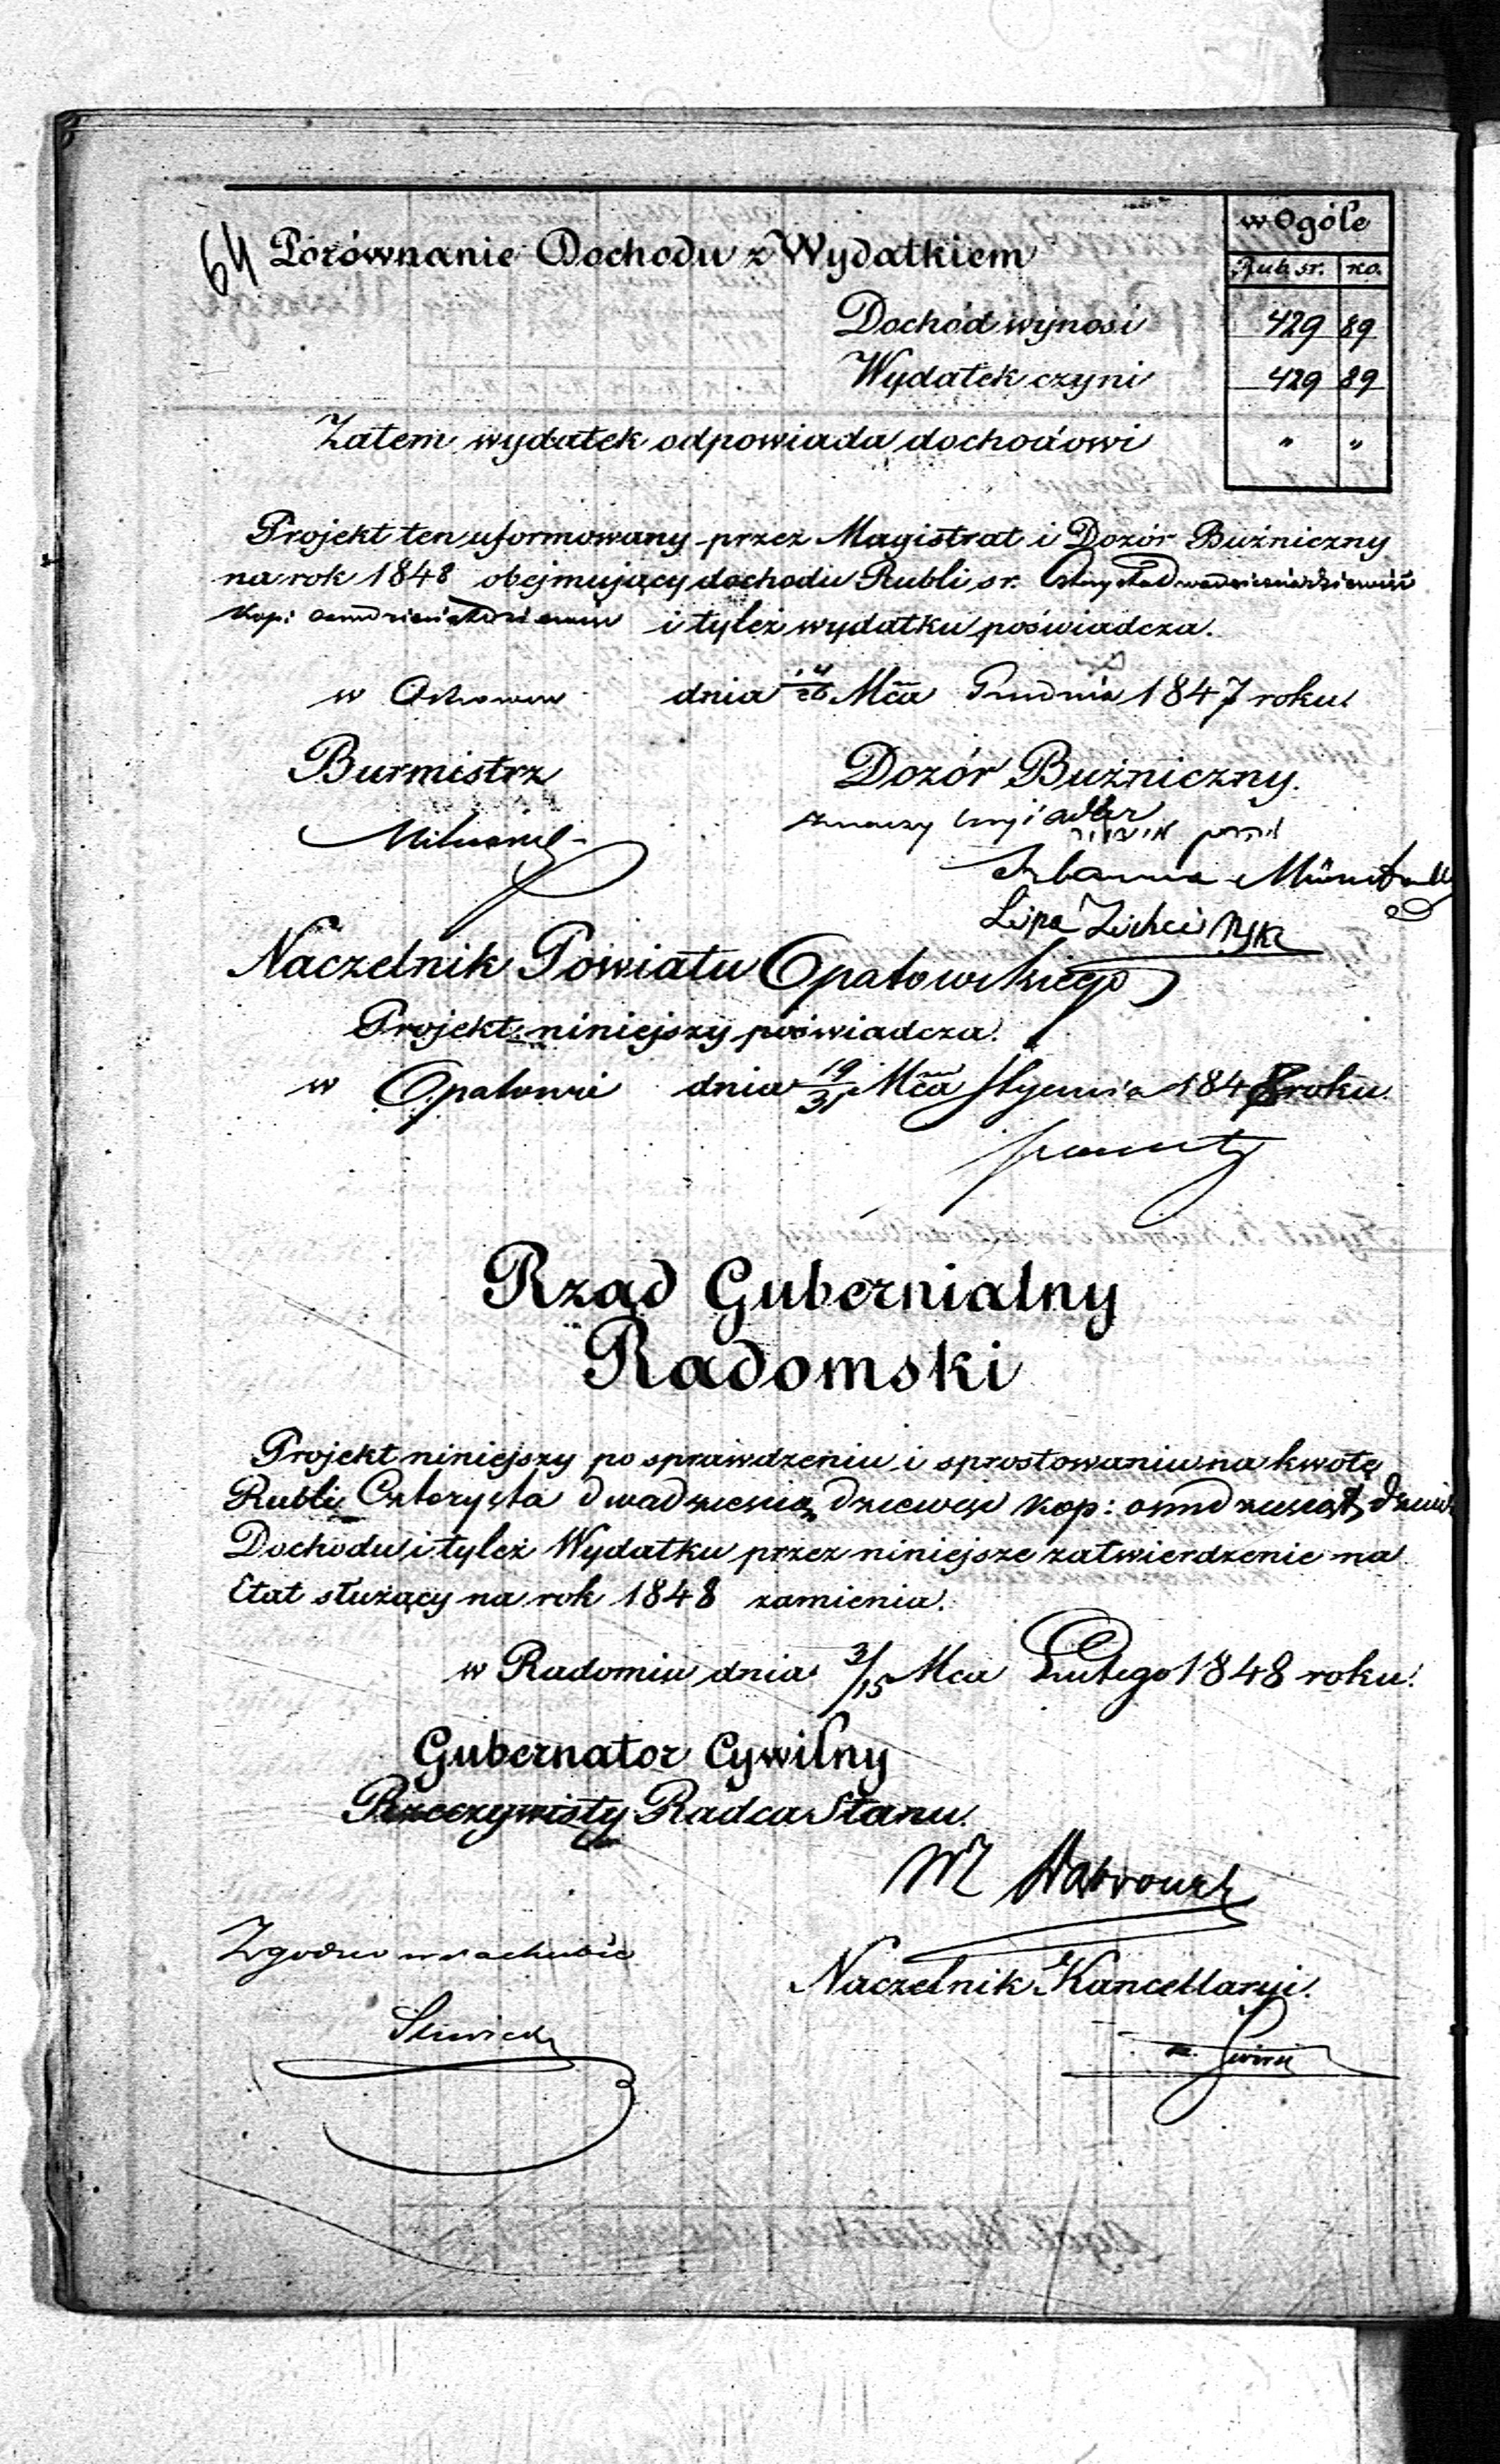 64 Porównanie Dochodu z Wydatkiem
w Ogóle
Rub sr. ko.
Dochód wynosi 429 89
Wydatek czyni 429 89
Zatem wydatek odpowiada dochodowi " "
Projekt ten uformowany przez Magistrat i Dozór Bużniczny
na rok 1848 obejmujący dochodu Rubli sr. Czterysta dwadzieścia dziewięć
Kop: osmdziesiąt dziewięć i tyleż wydatku poświadcza.
w dnia 14/26 Mca Grudnia 1847 roku.
Burmistrz Dozór Bużniczny.
znaczy adler
Lipa
Naczelnik Powiatu Opatowskiego
Projekt niniejszy poświadcza.
w Opatowie dnia 19/31 Mca Stycznia 1848 roku.
Rząd Gubernialny
Radomski
Projekt niniejszy po sprawdzeniu i sprostowaniu na kwotę
Rubli Czterysta dwadzieścia dziewięć kop: osmdziesiąt
Dochodu i tyleż Wydatku przez niniejsze zatwierdzenie na
Etat służący na rok 1848 zamienia.
w Radomiu dnia 3/15 Mca Lutego 1848 roku.
Gubernator Cywilny
Rzeczywisty Radca Stanu.
Zgodno w rachubie
Naczelnik Kancellaryi.